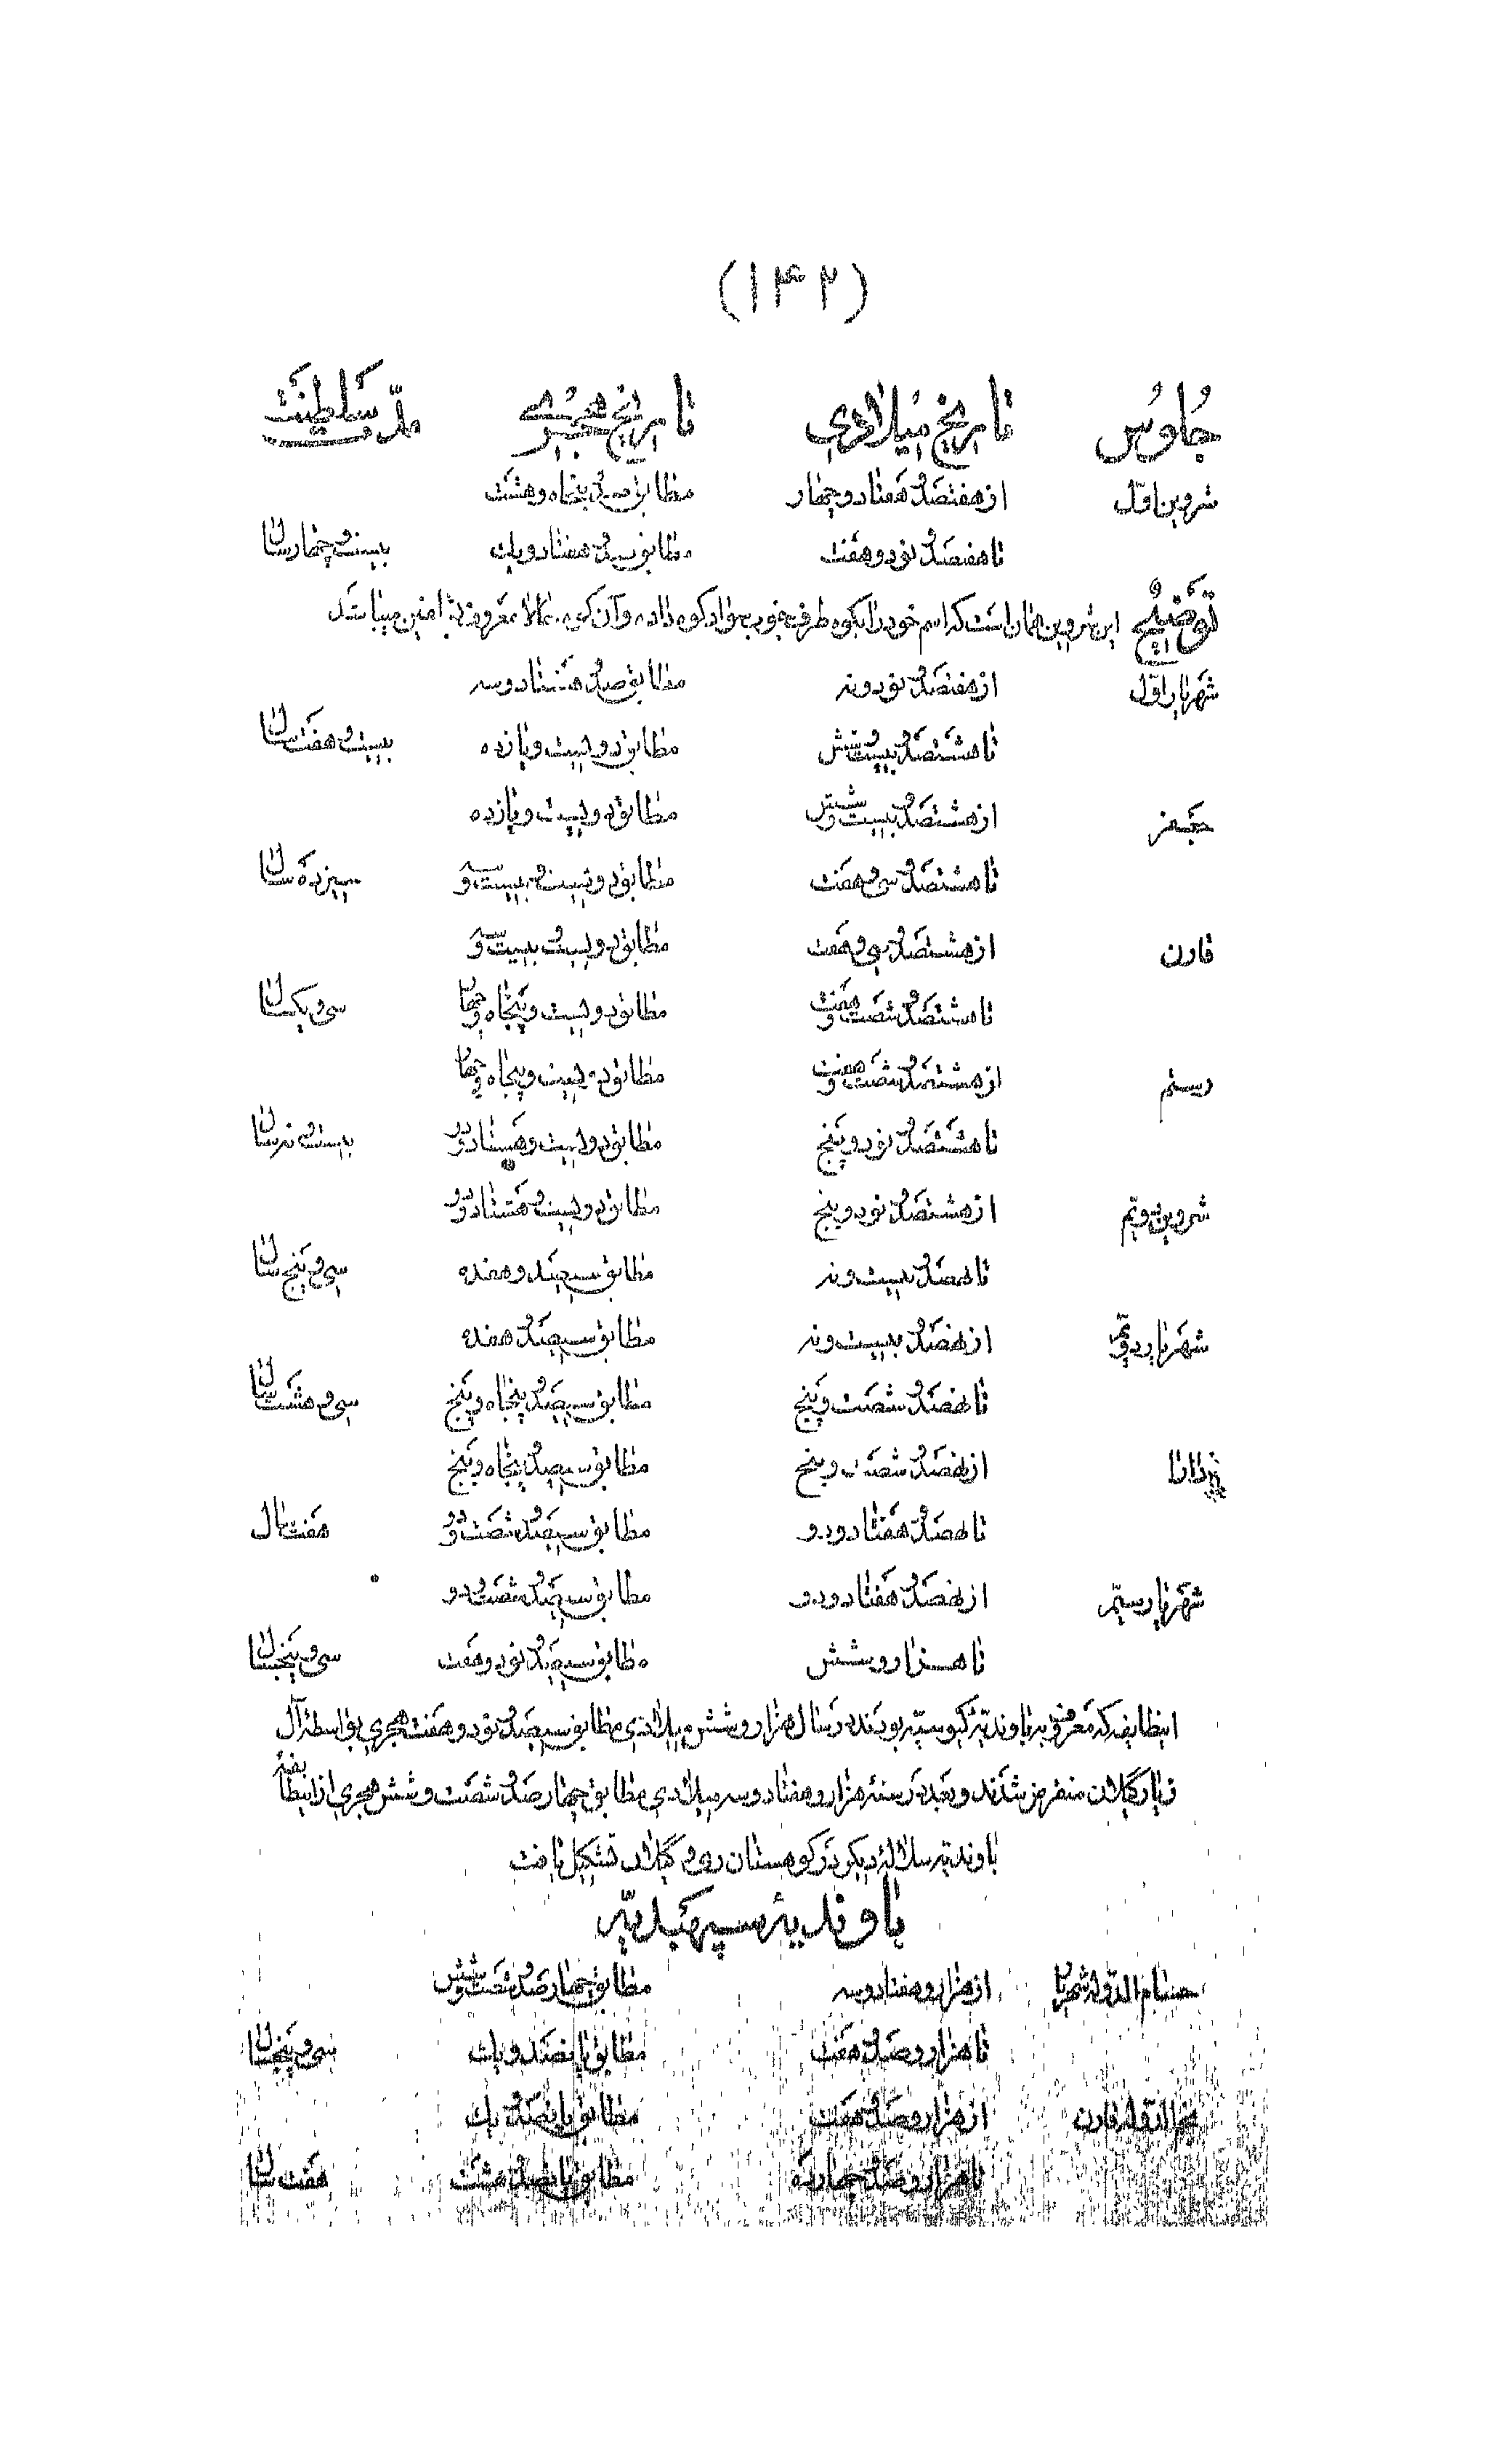 (۱۴۲)
جلوس تاریخ میلادی تاریخ هجری مدّت سلطنت
شروین اوّل از هفتصد و هفتاد و چهار مطابق صد و پنجاه و هشت
تا هفتصد و نود و هفت مطابق صد و هفتاد و یک بیست و چهار سال
توضیح این شروین همان است که اسم خود را بکوه طرف جنوب سواد کوه داده و آن کوه حالا معروف به امنین میباشد
شهریار اوّل از هفتصد و نود و نه مطابق صد و هفتاد و سه
تا هشتصد و بیست و شش مطابق دویست و یازده بیست و هفت سال
جعفر از هشتصد و بیست و شش مطابق دویست و یازده
تا هشتصد و سی و هفت مطابق دویست و بیست و سه سیزده سال
قارن از هشتصد و سی و هفت مطابق دویست و بیست و سه
تا هشتصد و شصت و هفت مطابق دویست و پنجاه و چهار سی و یک سال
رستم از هشتصد و شصت و هفت مطابق دویست و پنجاه و چهار
تا هشتصد و نود و پنج مطابق دویست و هشتاد و دو بیست و نه سال
شروین دویّم از هشتصد و نود و پنج مطابق دویست و هشتاد و دو
تا نهصد و بیست و نه مطابق سیصد و هفده سی و پنج سال
شهریار دویّم از نهصد و بیست و نه مطابق سیصد و هفده
تا نهصد و شصت و پنج مطابق سیصد و پنجاه و پنج سی و هشت سال
از نهصد و شصت و پنج مطابق سیصد و پنجاه و پنج
تا نهصد و هفتاد و دو مطابق سیصد و شصت و دو هفت سال
شهریار رستم از نهصد و هفتاد و دو مطابق سیصد و شصت و دو
تا هزار و شش مطابق سیصد و نود و هفت سی و پنجسال
اینطایفه که معروف به باوندیّهٔ کیوسیّه بودند در سال هزار و شش میلادی مطابق سیصد و نود و هفت هجری بواسطهٔ آل
زیار گیلان منقرض شدند و بعد در سنهٔ هزار و هفتاد و سه میلادی مطابق چهارصد و شصت و شش هجری از اینطایفهٔ
باوندیّه سلالهٔ دیگر در کوهستان رویه گیلان تشکیل یافت
باوندیهٔ سپهبدیّه
حسام الدّوله شهریار از هزار و هفتاد و سه مطابق چهارصد و شصت و شش
تا هزار و صد و هفت مطابق پانصد و یک سی و پنجسال
نجم الدّوله قارن از هزار و صد و هفت مطابق پانصد و یک
تا هزار و صد و چهارده مطابق پانصد و هشت هفت سال